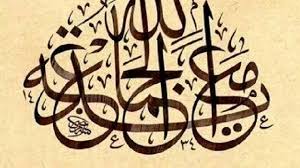 يد الله مع الجماعة